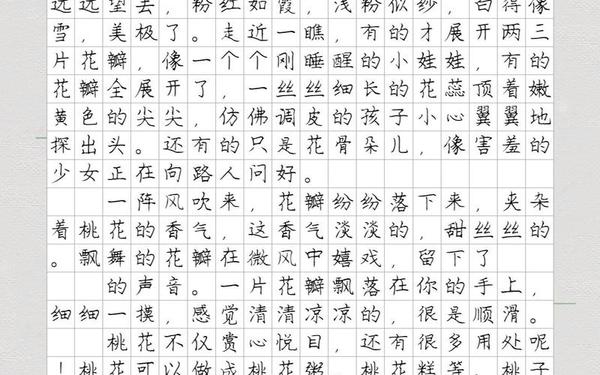 远远望去，粉红如霞，浅粉似纱，白得像
雪，美极了。走近一瞧，有的才展开两三
片花瓣，像一个个刚睡醒的小娃娃，有的
花瓣全展开了，一丝丝细长的花蕊顶着嫩
黄色的尖尖，仿佛调皮的孩子小心翼翼地
探出头。还有的只是花骨朵儿，像害羞的
少女正在向路人问好。
一阵风吹来，花瓣纷纷落下来，夹杂
着桃花的香气，这香气淡淡的，甜丝丝的
。飘舞的花瓣在微风中嬉戏，留下了
的声音。一片花瓣飘落在你的手上，
细细一摸，感觉清清凉凉的，很是顺滑。
桃花不仅赏心悦目，还有很多用处呢
！桃花可以做成桃花粥、桃花糕等。桃子